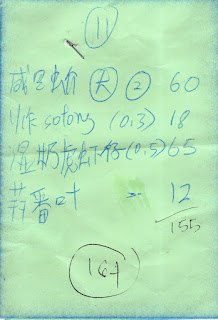 11
咸旦虫介 大 2 60
炸 sotong (0.3) 18
湿奶虎虾仔 (0.5) 65
苻番叶 = 12
155
164